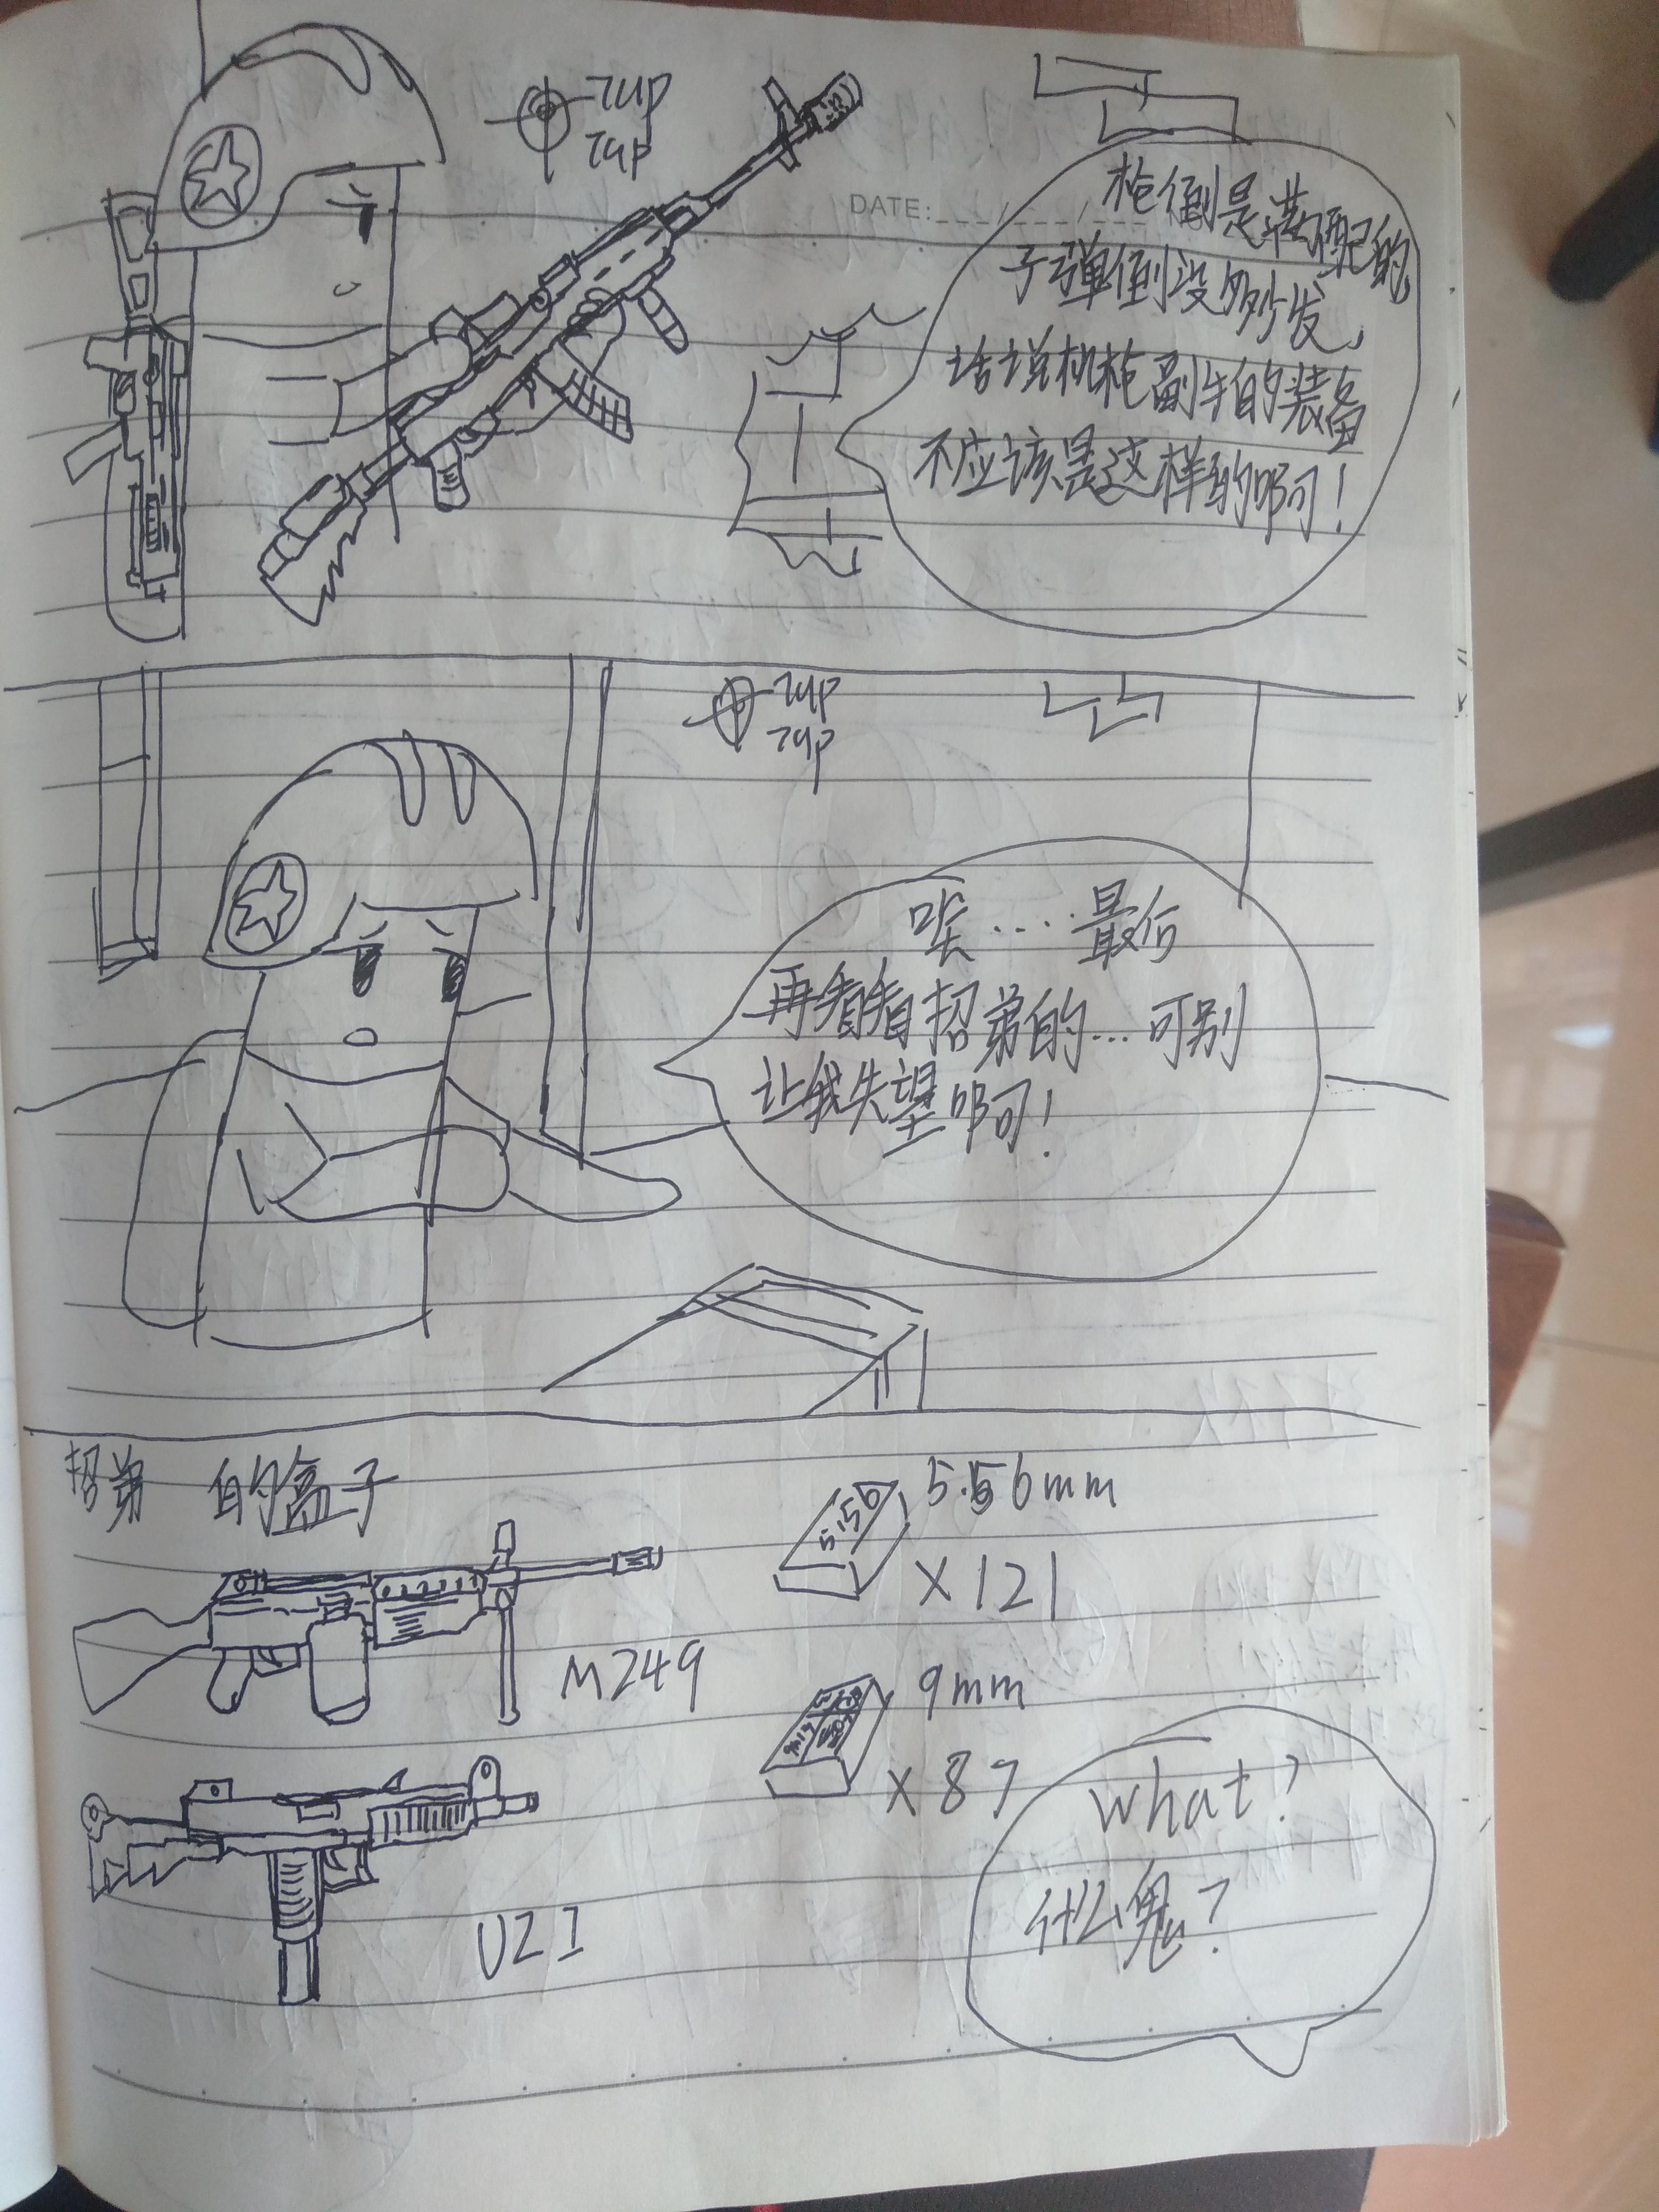 7up
7up
DATE:
枪倒是满配的
子弹倒没多少发,
话说机枪副手的装备
不应该是这样的啊!
7up
7up
唉....最后
再看看招弟的...可别
让我失望啊!
招弟 的盒子
5.56mm
5.56
×121
M249
9mm
×87
What?
什么鬼?
UZI